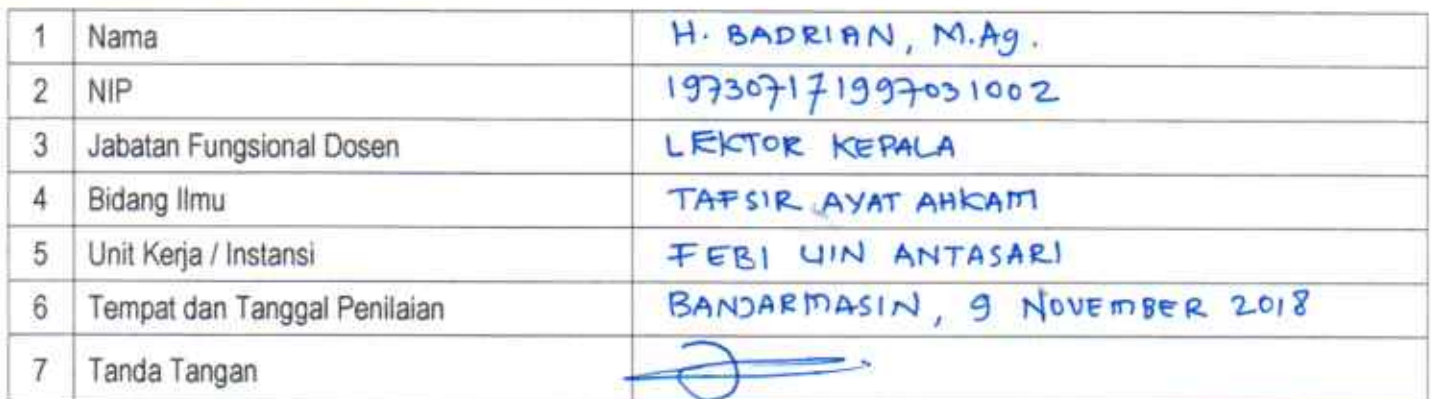 1 Nama H. BADRIAN, M.Ag.
2 NIP 197307171997031002
3 Jabatan Fungsional Dosen LEKTOR KEPALA
4 Bidang Ilmu TAFSIR AYAT AHKAM
5 Unit Kerja / Instansi FEBI UIN ANTASARI
6 Tempat dan Tanggal Penilaian BANJARMASIN, 9 NOVEMBER 2018
7 Tanda Tangan